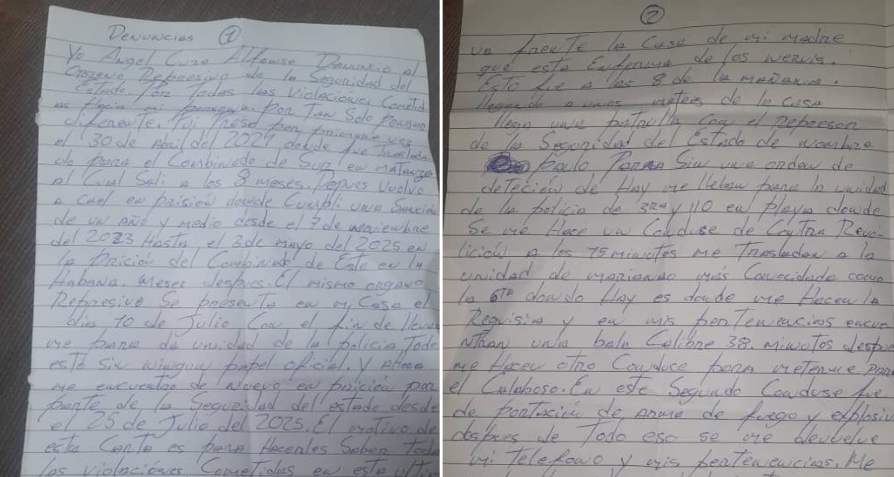 Denuncias 1
Yo Angel Cuza Alfonso Denuncio al
Organo Represivo de la Seguridad del
Estado. Por Todas las Violaciones Cometid
as Hacia mi persona. Por Tan Solo Pensar
diferente. Fui Preso por primera vez
el 30 de Abril del 2021 donde fue Traslada
do para el Combinado de Sur en Matanza
al Cual Sali a los 8 meses. Depues vuelvo
a caer en prision donde Cumpli una Sancion
de un Año y medio desde el 7 de noviembre
del 2023 Hasta el 3 de mayo del 2025 en
la Pricion del Combinado de Este en la
Habana. meses despues. El mismo organo
Represivo Se presenta en mi Casa el
dia 10 de Julio Con el fin de lleva
me para la unidad de la policia Todo
esto Sin ningun papel oficial. y Ahora
me encuentro de Nuevo en pricion por
parte de la Seguridad del estado desde
el 25 de Julio del 2025. El motivo de
esta Carta es para Hacerles Saber Todas
las violaciones Cometidas en esta ultim
2
va frente la Casa de mi madre
que esta Enferma de los nervis.
Esto fue a las 8 de la mañana.
llegando a unos metros de la casa
llego una patrulla Con el represor
de la Seguridad del Estado de nombre
Paulo Sin una orden de
detecion de Hay me llevan para la unidad
de la policia de 3ra y 110 en playa donde
Se me Hace un Conduse de Contra Revo-
licion a los 15 minutos me Trasladan a la
unidad de marianao mas Conocidada como
la 6ta donde Hay es donde me Hacen la
Requisia y en mis pertenencias encue
ntran una bala Calibre 38. minutos despue
me Hacen otro Conduse para meterme para
el Calaboso. En este Segundo Conduse fue
de portacion de Arma de fuego y explosiv
despues de Todo eso se me devuelve
mi Telefono y mis pertenencias. Me